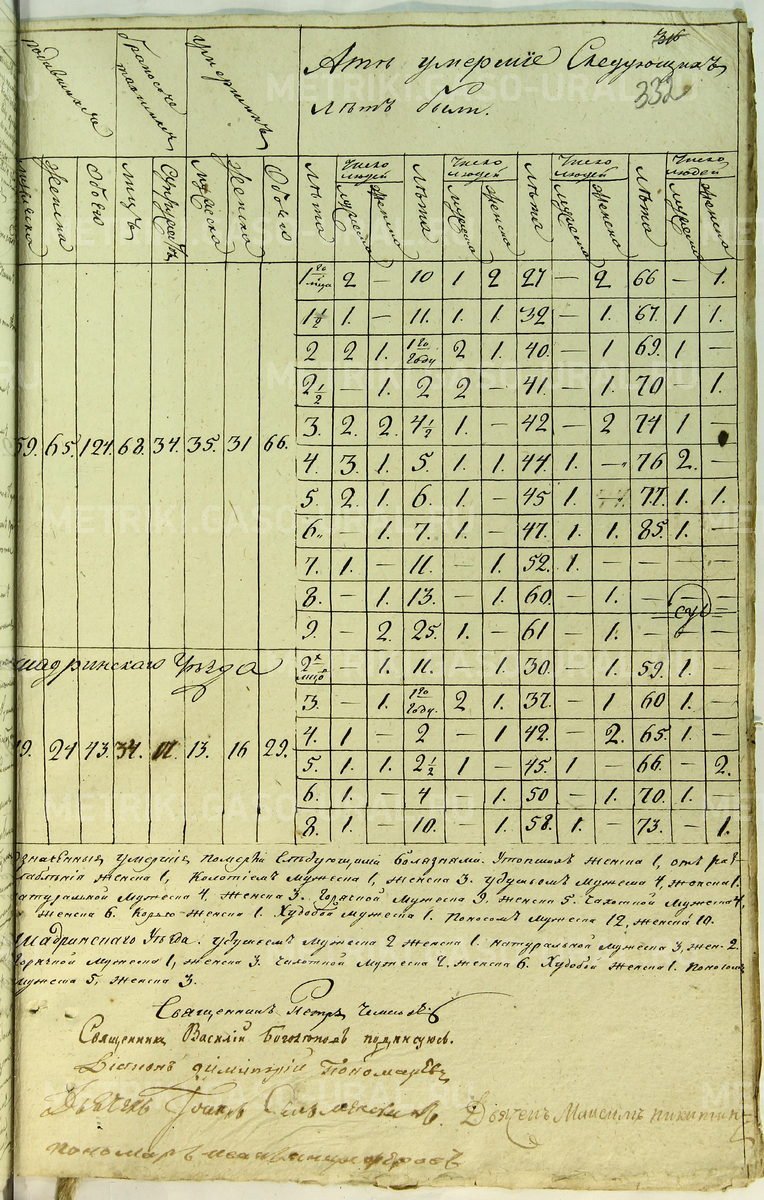 332
родившихся
бракосочетавшихся
умершихъ
Аты умершіе Слѣдующихъ
лѣтъ были.
мужеска женска Обоего лицъ Супружествъ мужеска женска Обоего
Лѣта Число людей мужеска женска Лѣта Число людей мужеска женска Лѣта Число людей мужеска женска Лѣта Число людей мужеска женска
1го мца 2 — 10 1 2 27 — 2 66 — 1.
1 1/2 1. — 11. 1. 1. 32 — 1. 67. 1 1.
2 2 1. 1го Году 2 1. 40. — 1. 69. 1 —
2 1/2 — 1. 2 2 — 41. — 1. 70 — 1.
3. 2. 2. 4 1/2 1. — 42 — 2 74 1 —
59. 65. 124. 68. 34. 35. 31 66.
4. 3. 1. 5. 1. 1. 44. 1. — 76 2. —
5. 2. 1. 6. 1. — 45 1. — 77. 1. 1.
6. — 1. 7. 1. — 47. 1. 1. 85. 1. —
7. 1. — 11. — 1. 52. 1. — — — —
8. — 1. 13. — 1. 60. — 1. — — —
9. — 2. 25. 1. — 61 — 1. — — —
Шадринскаго Уѣзда
2х мцов — 1. 11. — 1. 30. — 1. 59. 1. —
3. — 1. 1го Году. 2 1. 37. — 1 60 1. —
4. 1 — 2 — 1 42. — 2. 65. 1. —
19. 24 43. 34. 17. 13. 16 29.
5. 1. 1. 2 1/2 1 — 45. 1 — 66. — 2.
6. 1. — 4 — 1. 50 — 1. 70. 1. —
8. 1. — 10. — 1. 58. 1. — 73. — 1.
означенныя умершіе померли Слѣдующими болѣзнми. Утопшихъ женска 1, отъ раз-
слабленія женска 1, Колотіемъ Мужеска 1, женска 3. удушьемъ Мужеска 4, женска 1.
натуральной Мужеска 4, женска 3. Горячкой Мужеска 9. женска 5. Чахотной Мужеска 4,
женска 6. Корью женска 1. Худобой Мужеска 1. поносомъ Мужеска 12, женска 10.
Шадринскаго Уѣзда. удушьемъ Мужеска 2 женска 1. натуральной Мужеска 3, жен- 2.
Горячкой Мужеска 1, женска 3. Чахотной Мужеска 2. женска 6. Худобой женска 1. Поносомъ
Мужеска 5, женска 3.
Священникъ Петръ
Священникъ Василій Боголюповъ подписуюсь.
Діаконъ Димитрій Пономаревъ
Дьячекъ Іоаннъ Дьячекъ Максимъ Никитинъ
пономарь
METRIKI.GASO-URAL.RU